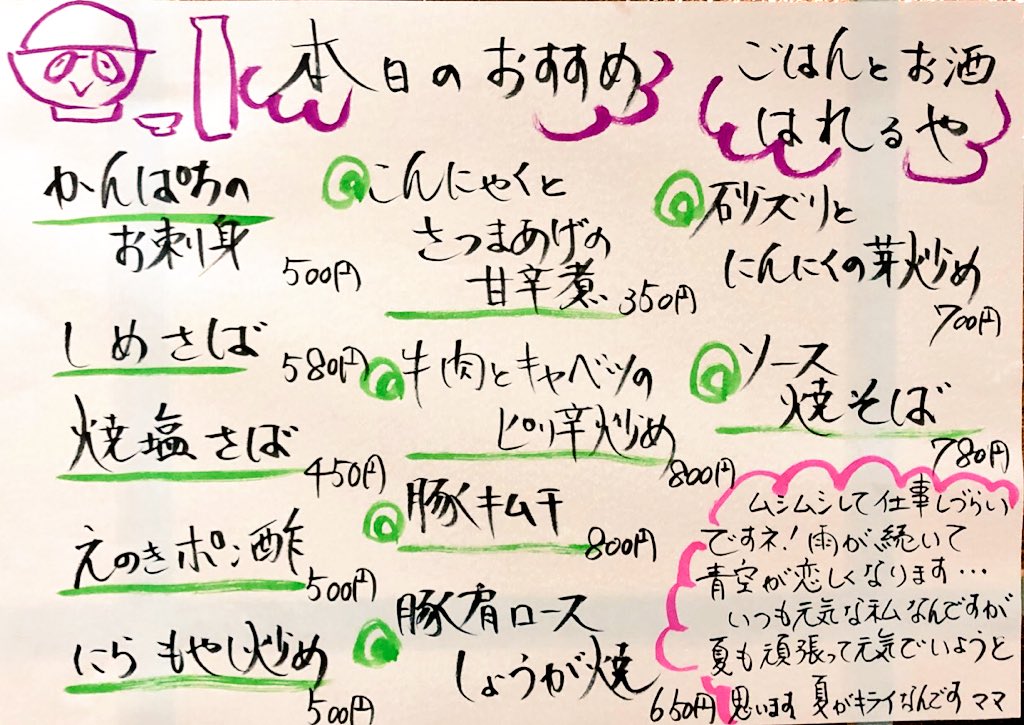 本日のおすすめ
ごはんとお酒
はれるや
かんぱちの
お刺身
500円
しめさば
580円
焼塩さば
450円
えのきポン酢
500円
にらもやし炒め
500円
こんにゃくと
さつまあげの
甘辛煮
350円
牛肉とキャベツの
ピリ辛炒め
800円
豚キムチ
800円
豚肩ロース
しょうが焼
650円
砂ズリと
にんにくの芽炒め
700円
ソース
焼そば
780円
ムシムシして仕事しづらい
ですネ!雨が続いて
青空が恋しくなります…
いつも元気な私なんですが
夏も頑張って元気でいようと
思います 夏がキライなんです ママ